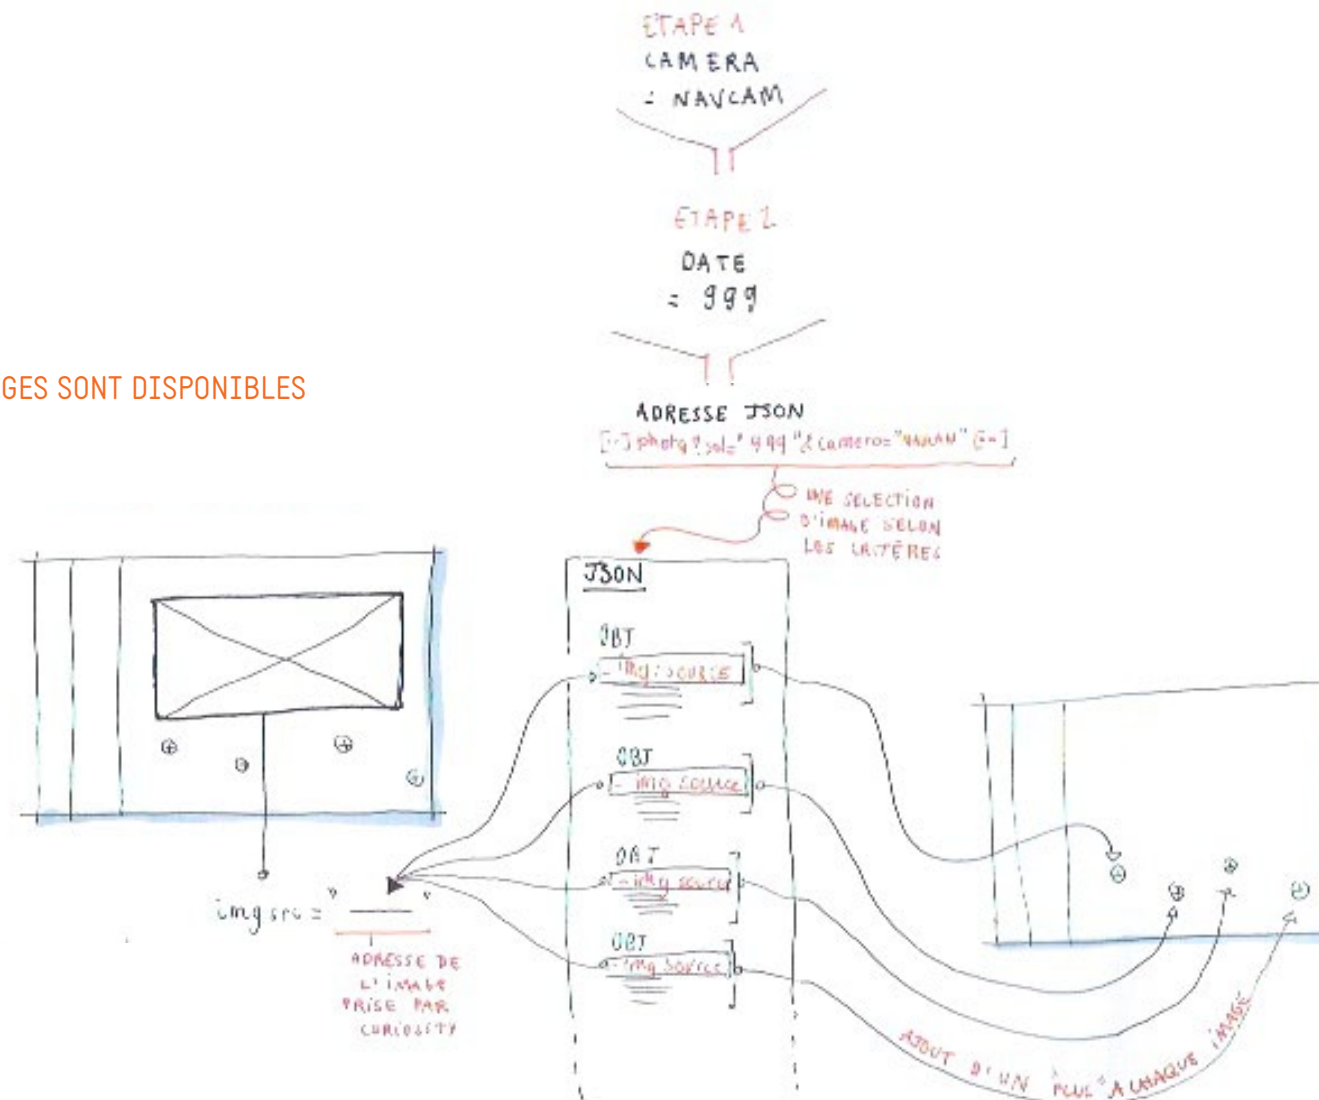 ETAPE 1
CAMERA
= NAVCAM
ETAPE 2
DATE
= 999
GES SONT DISPONIBLES
ADRESSE JSON
[--] photo?sol="999"&camera="NAVCAM" [--]
UNE SELECTION
D'IMAGE SELON
LES CRITÈRES
JSON
OBJ
- img source
OBJ
- img source
OBJ
- img source
OBJ
- img source
img src = " "
ADRESSE DE
L'IMAGE
PRISE PAR
CURIOSITY
AJOUT D'UN "PLUS" A CHAQUE IMAGE